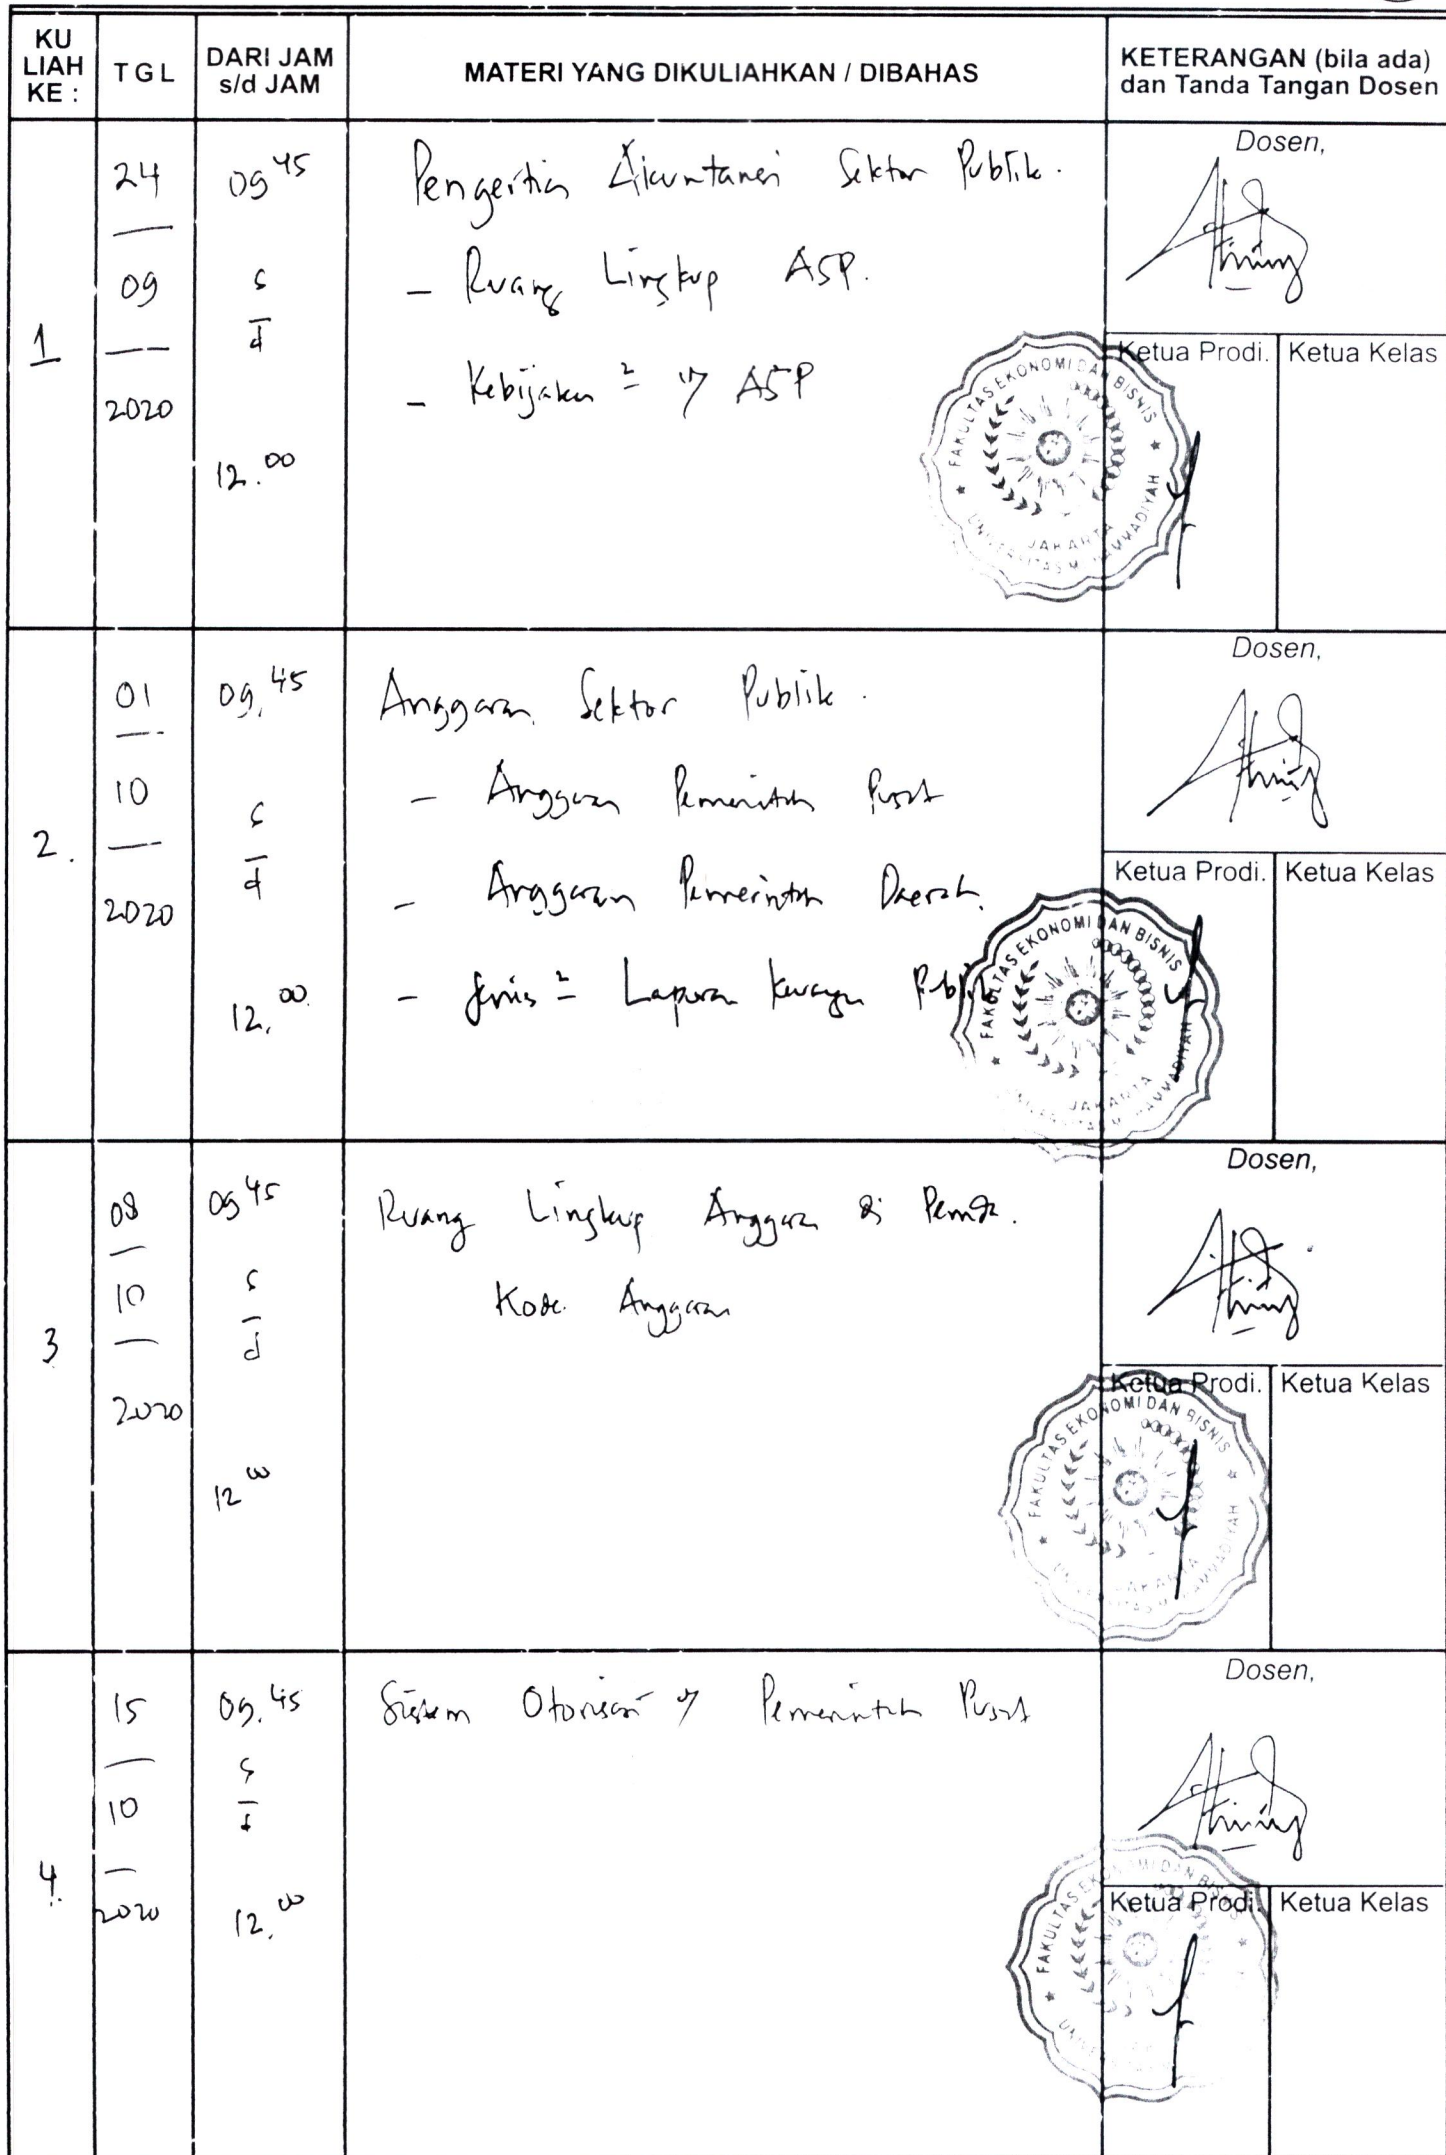 KU
LIAH
KE :
TGL
DARI JAM
s/d JAM
MATERI YANG DIKULIAHKAN / DIBAHAS
KETERANGAN (bila ada)
dan Tanda Tangan Dosen
1
24
09
2020
09 45
s
d
12.00
Pengertian Akuntansi Sektor Publik.
- Ruang Lingkup ASP.
- Kebijakan 2 ASP
Dosen,
Ketua Prodi.
Ketua Kelas
FAKULTAS EKONOMI DAN BISNIS
UNIVERSITAS MUHAMMADIYAH
JAKARTA
2.
01
10
2020
09.45
s
d
12.00
Anggaran Sektor Publik.
- Anggaran Pemerintah Pusat
- Anggaran Pemerintah Daerah.
- Jenis 2 Laporan Keuangan Publik
Dosen,
Ketua Prodi.
Ketua Kelas
FAKULTAS EKONOMI DAN BISNIS
MUHAMMADIYAH
JAKARTA
3
08
10
2020
09 45
s
d
12 00
Ruang Lingkup Anggaran di Pemda.
Kode Anggaran
Dosen,
Ketua Prodi.
Ketua Kelas
FAKULTAS EKONOMI DAN BISNIS
4.
15
10
2020
09.45
s
d
12.00
Sistem Otorisasi Pemerintah Pusat
Dosen,
Ketua Prodi.
Ketua Kelas
FAKULTAS